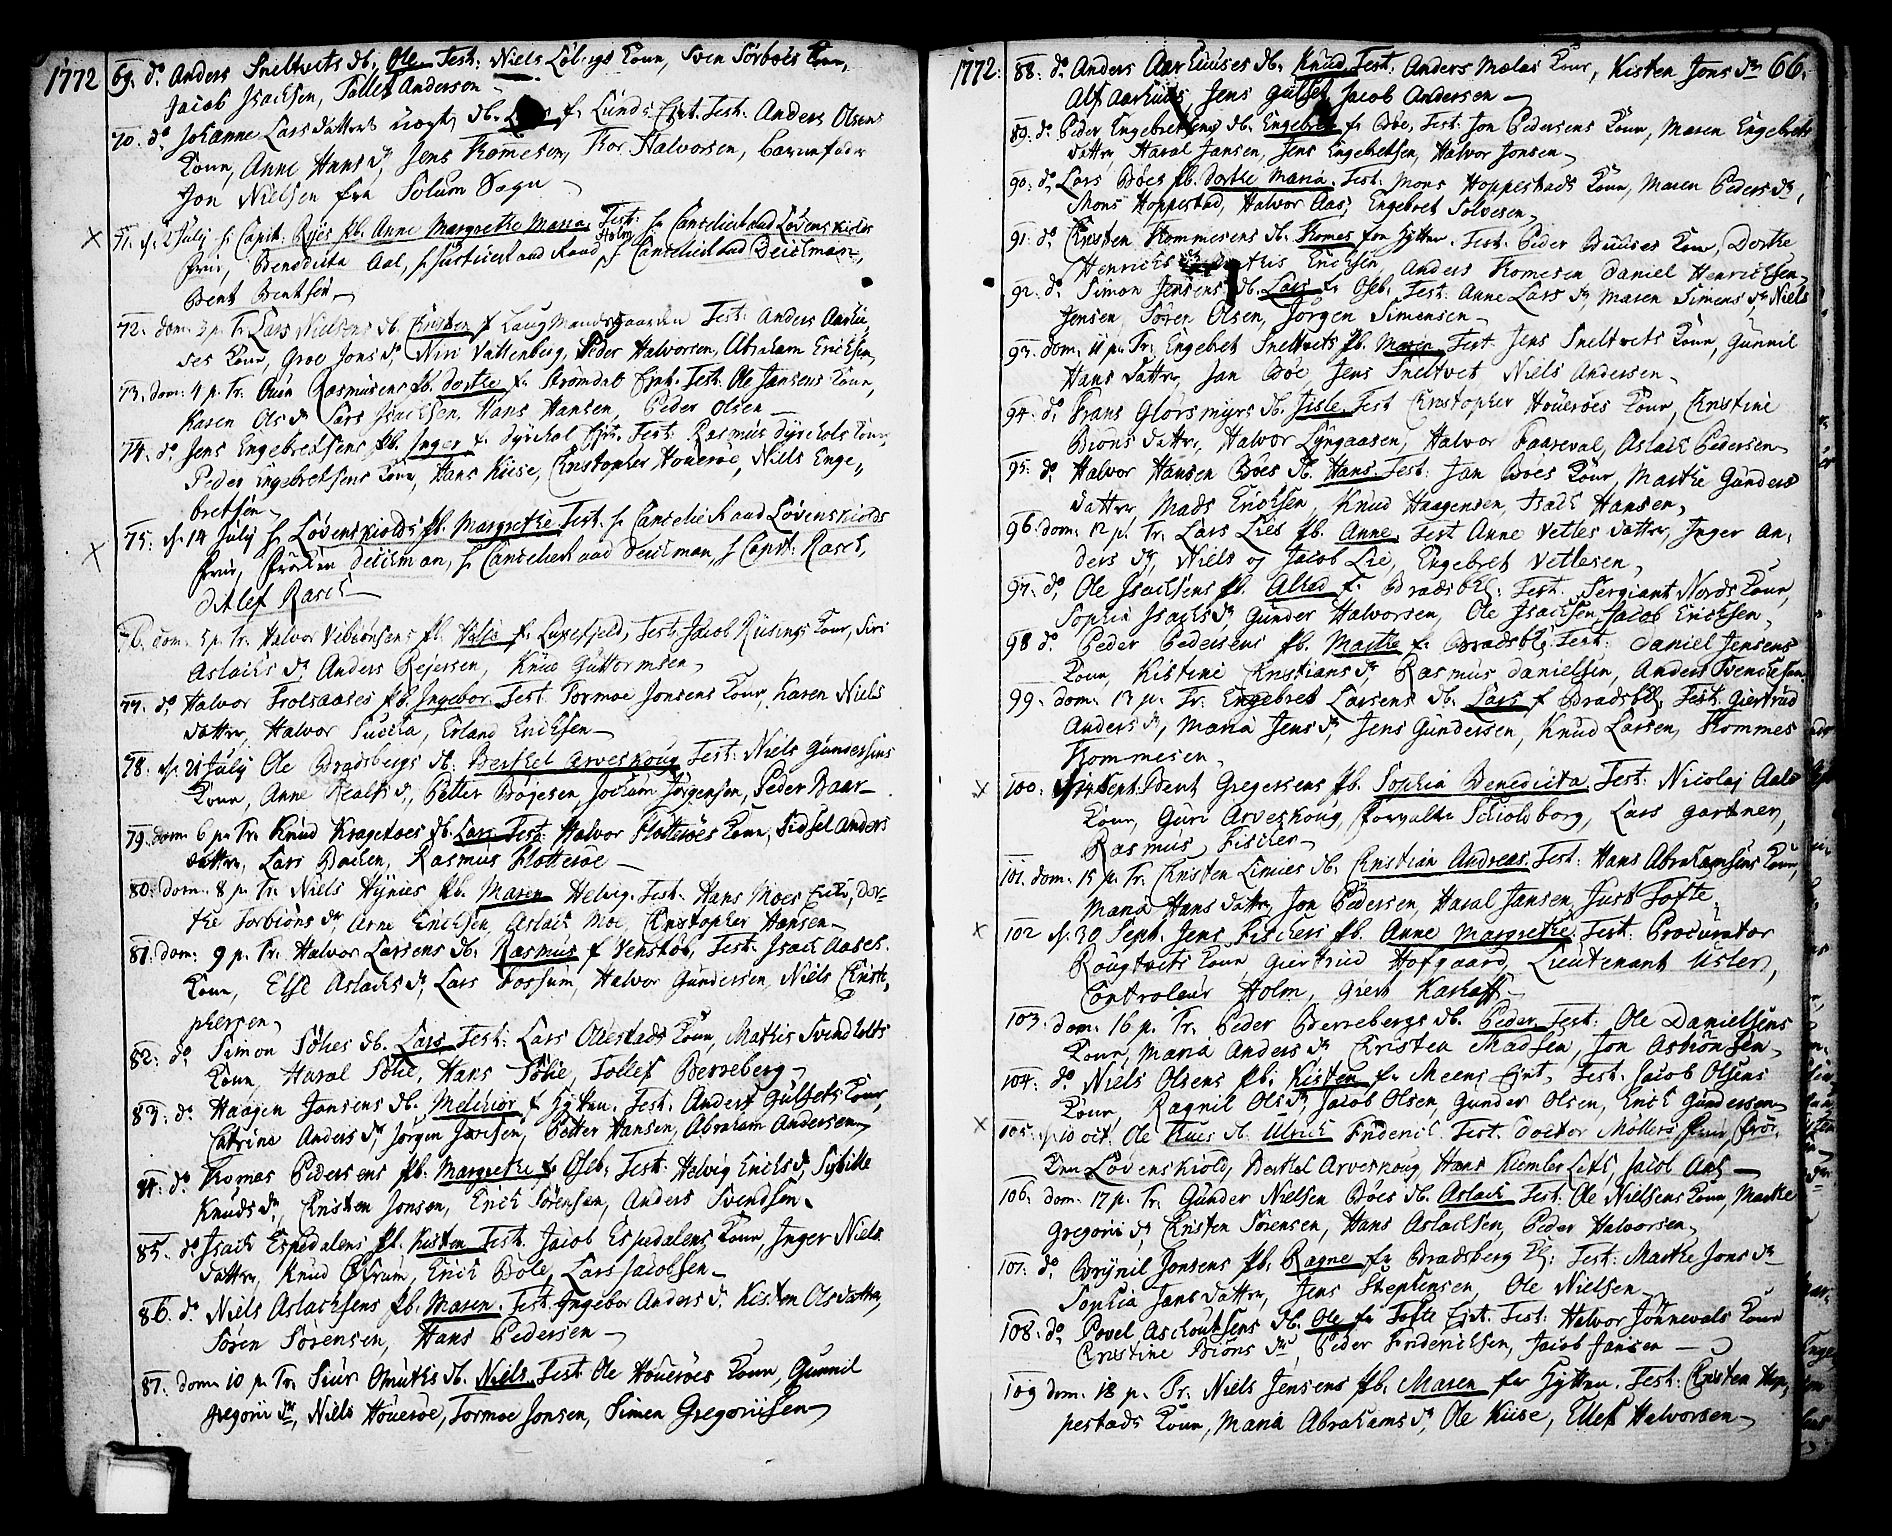 1772
69. do Anders Sneltvets db. Ole Test: Niels Löbergs Kone, Sven Sörboes Kone,
Jacob Isachsen, Tollef Anderson
70. do Johanne Larsdatters uægte db. f. Lunds Eyet. Test: Anders Olsens
Kone, Anne Hans dr, Jens Komesen, Kor Halvorsen, barnefader
Jon Nielsen fra Solum Sogn
71. d. 2 July hr Capit: Ryes pb. Anne Margrethe Maria Test: hr Cancelieraad Lövenskiolds
Frue, Benedicta Aal, hr Justiceraad hr Cancelieraad Deichman,
Holm
Bent Bentsen
72. dom. 3 p. Tr. Lars Nielsens db. Cristen f Laugmandsgaarden Test: Anders Aarhu,
ses Kone, Groe Jons dr, Niri Vattenberg, Peder Halvorsen, Abraham Erichsen,
73. dom: 4 p. Tr. Ouin Rasmusens pb. Dorthe f. Strömdal Eyet. Test: Ole Jansens Kone,
Karen Ols dr Lars Isachsen, Hans Hansen, Peder Olsen
74. do Jens Engebretsens pb. Inger f. Dyrekol Eyet. Test: Rasmus Dyrekols Kone,
Peder Engebretsens Kone, Hans Kiise, Cristopher Houeroe, Niels Enge,,
bretsen
75. d. 14 July hr Lövenskiolds pb. Margrethe Test: hr Cancelieraad Lövenskiolds
Frue, Fröken Deichman, hr Cancelieraad Deichman, hr Capit: Rasch,
Ditlef Rasch
76. dom. 5 p. Tr. Halvor Vebiönsens pb. Helje f. Luxefjeld, Test: Jacob Riisings Kone, Siri
Aslachs dr Anders Rejersen, Knud Guttormsen
77. do Halvor Trolsaases pb. Ingebor Test. Tormoe Jonsens Kone, Karen Niels
datter, Halvor Erland Erichsen
78. d. 21 July Ole Bradsbergs db. Berthel Arveskoug Test: Niels Gundersens
Kone, Anne Petter Böjesen Jochum Jörgensen, Peder Baar
79. dom. 6 p. Tr. Knud Kragetoes db. Lars Test: Halvor Flotteroes Kone, Sidsel Anders
datter, Lars Bachen, Rasmus Flotteröe
80. dom. 8 p. Tr. Niels Hynies pb. Maren Helvig. Test: Hans Moes Enke, Dor-
the Torbiöns dr Arne Erichsen Aslach Moe, Cristopher Hansen
81. dom: 9 p. Tr. Halvor Larsens db. Rasmus f Venstöb, Test: Isach Aases
Kone, Else Aslachs dr, Lars Fossum, Halvor Gundersen, Niels Cristo,
phersen
82. do Simon Solies db. Lars Test: Lars Ollestads Kone, Mathis Svendholts
Kone, Haral Solie, Hans Solie, Tollef Berreberg
83. do Haagen Jansens db. Melchior f Hytten. Test: Anders Gulsets Kone,
Catrine Anders dr Jörgen Petter Hansen, Abraham Andersen
84. do Thomas Pedersens pb. Margrethe f. Oseb: Test: Helvig Erichs dr, Sybille
Knuds dr, Cristen Jonson, Erich Sörensen, Anders Svendsen
85. do Isach Espedalens pb. Kisten Test: Jacob Espedalens Kone, Inger Niels
datter, Knud Erich Böle, Lars Jacobsen
86. do Niels Aslachsens pb. Maren. Test. Ingebor Anders dr Kisten Olsdatter,
Sören Sörensen, Hans Pedersen
87. dom 10 p. Tr. Siur Omuths db. Niels. Test: Ole Houeröes Kone, Gunnil
Gregorii dr, Niels Houeröe, Tormoe Jonsen, Simen Gregoriisen
1772. 66.
88. do Anders Aarhuuses db. Knud Test: Anders Mælas Kone, Kisten Jons dr
Alf Aarhuus Jens Gulset Jacob Andersen
89. do Peder Engebretsens db. Engebret f. Böe, Test: Jon Pedersens Kone, Maren Engebrets
datter Haral Jansen, Jens Engebretsen, Halvor Jonsen
90. do Lars Böes pb. Dorthe Maria. Test: Mons Hoppestads Kone, Maren Peders dr,
Mons Hoppestad, Halvor Aas, Engebret Solvesen
91. do Cristen Thommesens db. Thomes fra Hytten. Test: Peder Buuses Kone, Dorthe
Henrichs Erichsen, Anders Thomesen Daniel Henrichsen
92. do Simon Jensens db. Lars f. Oseb. Test: Anne Lars dr Maren Simens dr, Niels
Jensen, Sören Olsen, Jörgen Simensen
93. dom. 11 p. Tr. Engebret Sneltvets pb. Maren Test. Jens Sneltvets Kone, Gunnil
Hans datter, Jan Böe, Jens Sneltvet Niels Andersen
94. do Frans Glörsmyrs db. Jisle Test Cristopher Houeröes Kone, Cristine
Biöns datter, Halvor Lyngaasen, Halvor Faareval, Aslach Pedersen
95. do Halvor Hansen Böes db. Hans Test: Jan Böes Kone, Marthe Gunders
datter Mads Erichsen, Knud Haagensen, Isach Hansen,
96. dom: 12 p. Tr. Lars Lies pb. Anne Test Anne Vetles datter, Inger An,
ders dr, Niels og Jacob Lie, Engebret Vetlesen,
97. do Ole Isachsens pb. Alhed f. Bradsb: Test: Sergiant Nords Kone,
Sophia Isachs dr Gunder Halvorsen, Ole Isachsen Jacob Erichsen,
98 do Peder Pedersens pb. Marthe f. Bradsb: Test: Daniel Jensens
Kone, Kistine Cristians dr, Rasmus Danielsen, Anders Svenchesen
99. dom. 13 p. Tr. Engebret Larsens db. Lars f Bradsb: Test: Giertrud
Anders dr, Maria Jens dr, Jens Gundersen, Knud Larsen, Thommes
Thommesen
100. d. 14 Sept: Bent Gregersens pb. Sophia Benedicta. Test: Nicolaj Aals
Kone, Guri Arveskoug, Forvalter Schioldborg, Lars Gartner,
Rasmus Fischer
101. dom. 15 p. Tr. Cristen Limies db. Cristian Andreas. Test: Hans Abrahamsens Kone,
Maria Hans datter Jon Pedersen, Haral Jansen, Just Tofte
102 d. 30 Sept. Jens Fischers pb. Anne Margrethe Test: Procurator
Rougtvets Kone Giertrud Hofgaard, Lieutenant Usler,
Controleur Holm, Giert Karhoff
103. dom: 16 p. Tr. Peder Berrebergs db. Peder Test: Ole Danielsens
Kone, Maria Anders dr Cristen Madsen, Jon Asbiönsen
104. do Niels Olsens pb. Kisten f. Meens Eyet, Test: Jacob Olsens
Kone, Ragnil Ols dr, Jacob Olsen, Gunder Olsen, Erich Gundersen
105. d. 10 oct. Ole Rues db. Ulrich Friderich Test. Doctor Möllers Frue, Frö,
ken Lövenskiold, Berthel Arveskoug Hans Kiemler Leth, Jacob Aal
106. dom: 17 p. Tr. Gunder Nielsen Böes db. Aslach Test. Ole Nielsens Kone, Marthe
Gregorii dr, Cristen Sörensen, Hans Aslachsen, Peder Halvorsen
107. do Brynil Jonsens pb. Ragne fra Bradsberg Test: Marthe Jons dr
Sophia Jans datter, Jens Stephensen, Ole Nielsen
108. do Povel Aschoutsens db. Ole fra Tofte Eyet. Test: Halvor Jönnevals Kone
Cristine Biöns dr, Peder Friderichsen, Jacob Jansen
109 dom: 18 p. Tr. Niels Jensens pb. Maren fra Hytten. Test: Cristen Hop,
pestads Kone, Maria Abrahams dr, Ole Kiise, Ellef Halvorsen